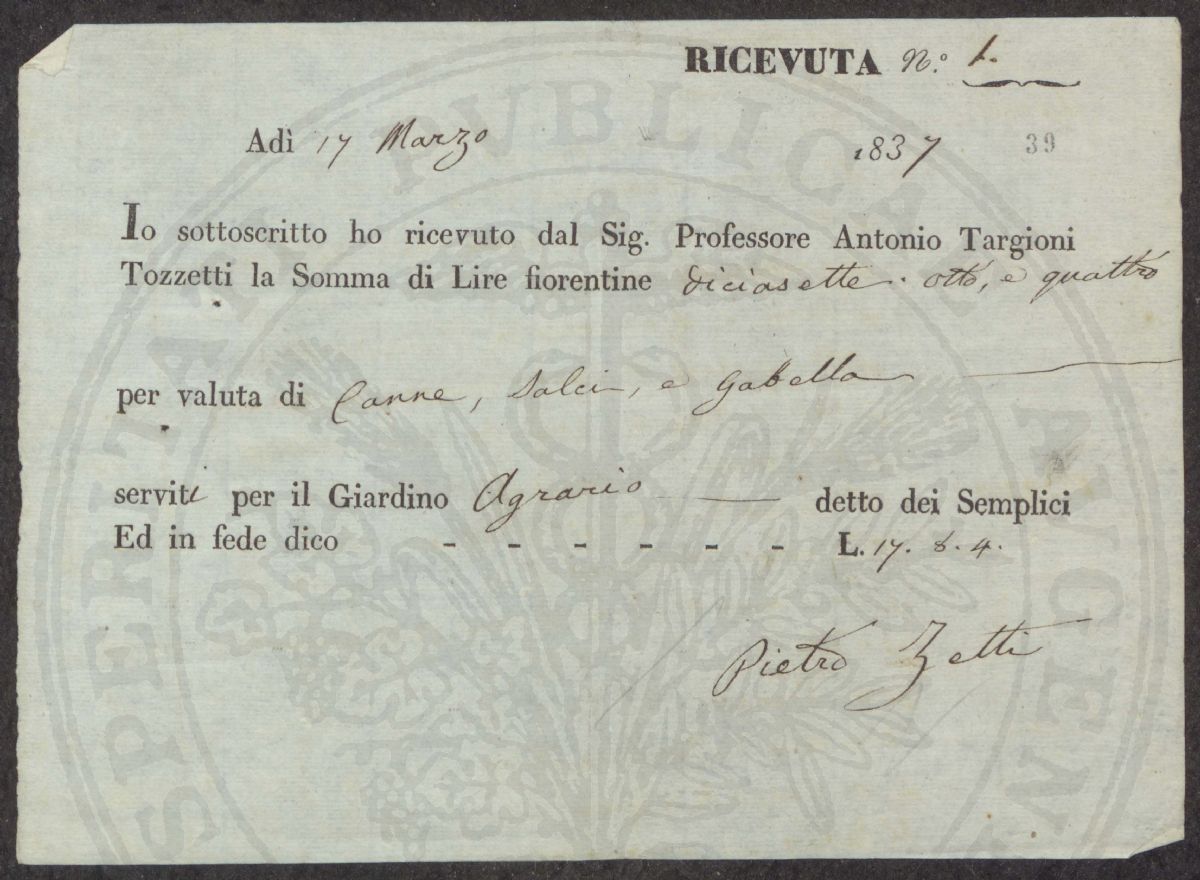 RICEVUTA N.º 1.
Adì 17 Marzo 1837 39
Io sottoscritto ho ricevuto dal Sig. Professore Antonio Targioni
Tozzetti la Somma di Lire fiorentine diciasette. otto, e quattro
per valuta di Canne, Salci, e Gabella
serviti per il Giardino Agrario detto dei Semplici
Ed in fede dico - - - - - - L. 17. 8. 4.
Pietro Zetti
SPERITATI PVBLICAE AVGEN